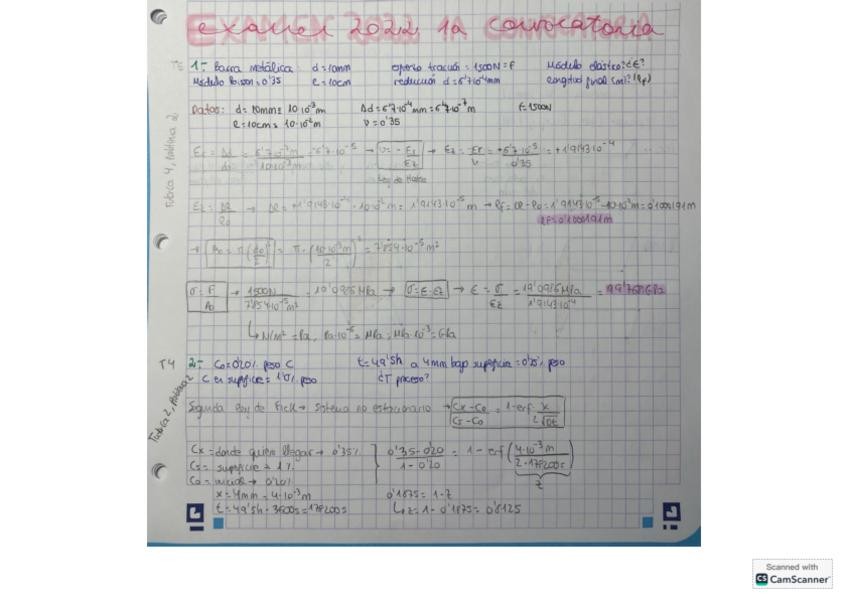 EXAMEN 2022 1A CONVOCATORIA
examen 2022 1a convocatoria
T5 1- Barra metálica d=10mm esfuerzo tracción = 1500N = F Módulo elástico? ¿E?
Módulo Poisson = 0'35 l=10cm reducción d=6'7·10⁻⁴mm longitud final (m)? (lf)
Datos: d=10mm = 10·10⁻³m Δd=6'7·10⁻⁴mm=6'7·10⁻⁷m F=1500N
l=10cm = 10·10⁻²m ν=0'35
Tubica 4, Problema 2
εx = Δd/d0 = 6'7·10⁻⁷m/10·10⁻³m = 6'7·10⁻⁵ → ν = -εx/εz → εz = -εx/ν = +6'7·10⁻⁵/0'35 = +1'9143·10⁻⁴
Ley de Hooke
εz = Δl/l0 → Δl = +1'9143·10⁻⁴·10·10⁻²m = 1'9143·10⁻⁵m → lf = Δl+l0 = 1'9143·10⁻⁵+10·10⁻²m = 0'100191m
lf=0'100191m
→ A0 = π(d0/2)² = π·(10·10⁻³m/2)² = 7'854·10⁻⁵m²
σ = F/A0 → 1500N/7'854·10⁻⁵m² = 19'0985MPa → σ=E·εz → E = σ/εz = 19'0985MPa/1'9143·10⁻⁴ = 99'768GPa
↳ N/m² = Pa, Pa·10⁻⁶ = MPa, MPa·10⁻³ = GPa
T4 2- C0=0'20% peso C t=49'5h a 4mm bajo superficie = 0'35% peso
C en superficie = 1'0% peso ¿T proceso?
Tubica 2, Problema 2
Segunda ley de Fick → Sistema no estacionario → Cx-C0/Cs-C0 = 1-erf x/2√Dt
Cx = donde quiero llegar → 0'35%
Cs = superficie → 1%
C0 = inicial → 0'20%
0'35-0'20/1-0'20 = 1 - erf(4·10⁻³m/2·178200s)
z
x=4mm = 4·10⁻³m 0'1875 = 1-z
t=49'5h·3600s=178200s ↳ z=1-0'1875=0'8125
Scanned with
CS CamScanner